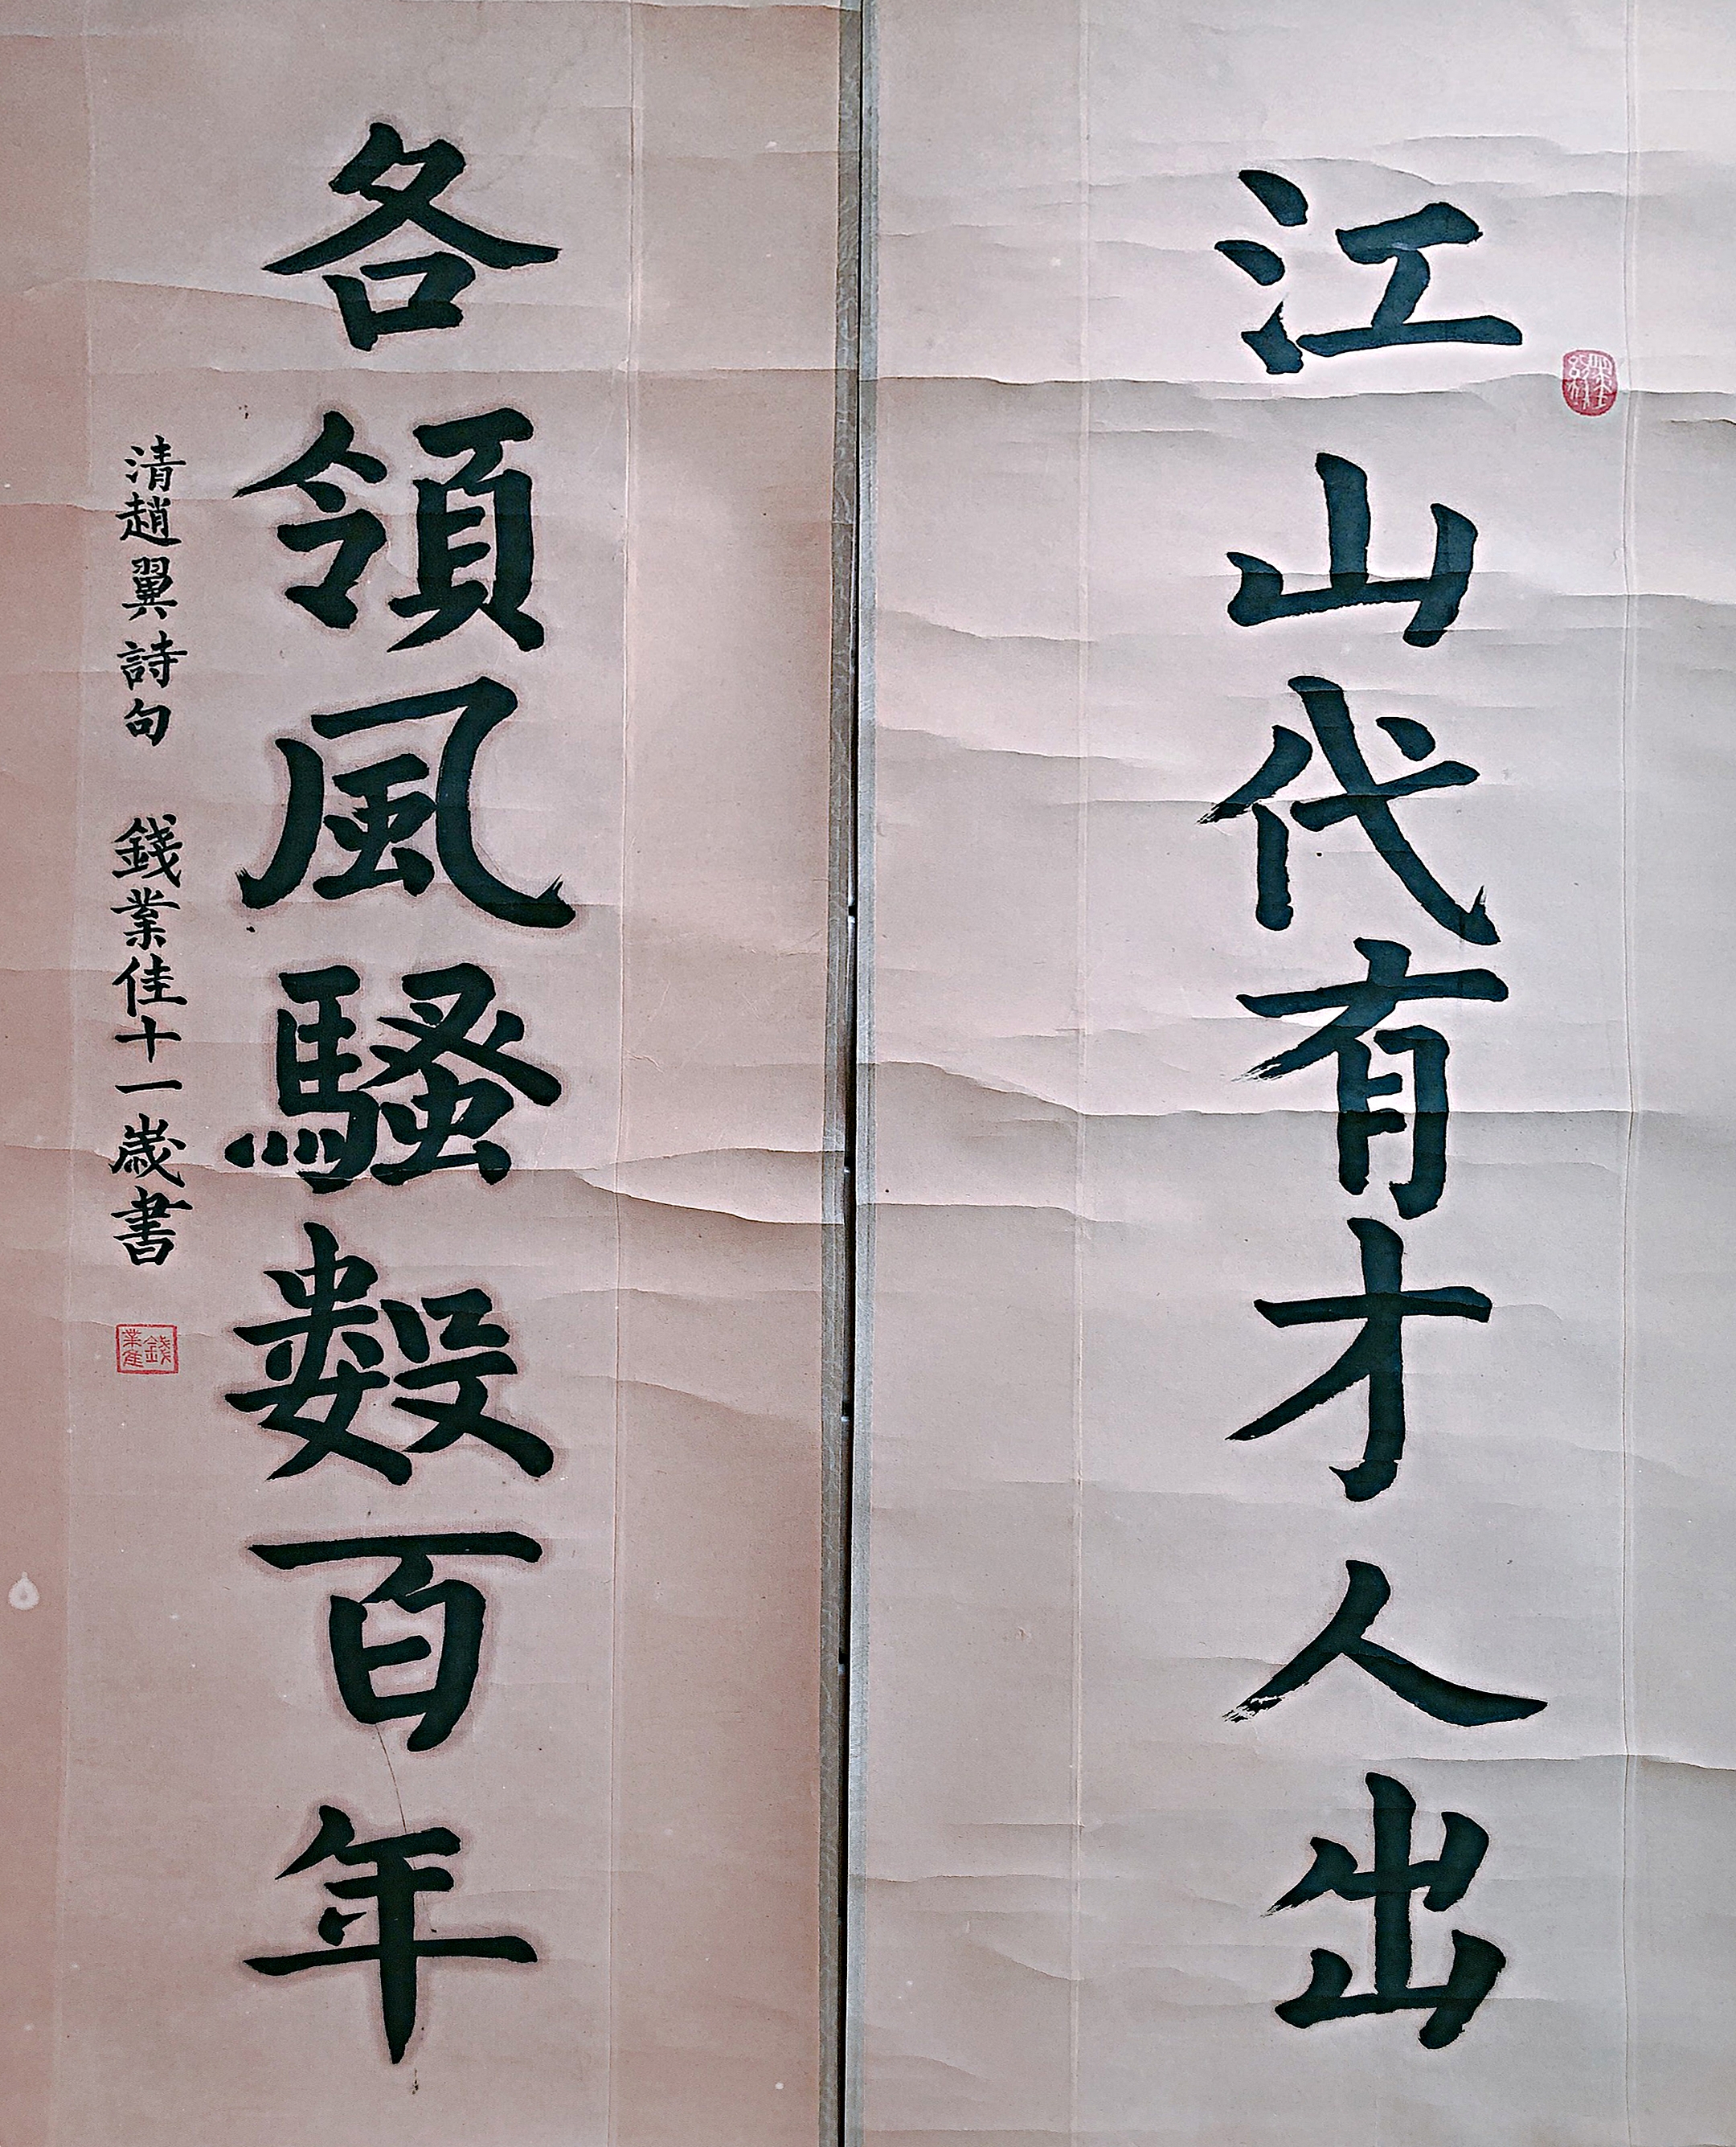 江山代有才人出
各領風騷數百年
清趙翼詩句 錢業佳十一歲書
錢業佳